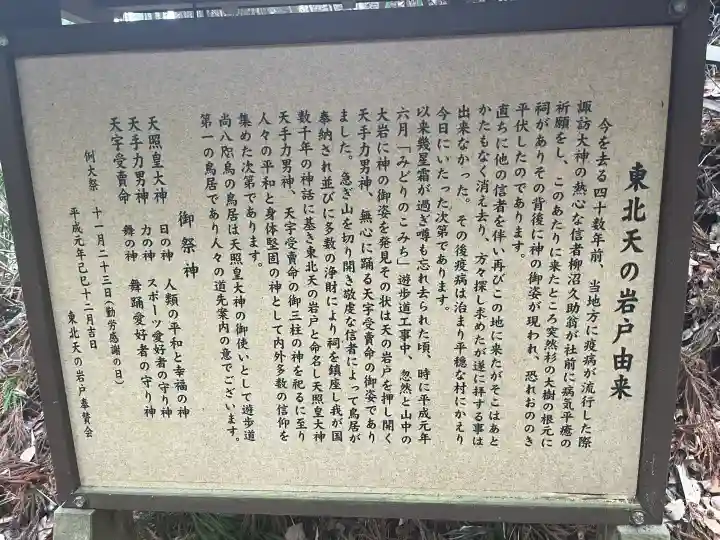 東北天の岩戸由来
今を去る四十数年前、当地方に疫病が流行した際
諏訪大神の熱心な信者柳沼久助翁が社前に病気平癒の
祈願をし、このあたりに来たところ突然杉の大樹の根元に
祠がありその背後に神の御姿が現われ、恐れおののき
平伏したのであります。
直ちに他の信者を伴い再びこの地に来たがそこはあと
かたもなく消え去り、方々探し求めたが遂に拝する事は
出来なかった。その後疫病は治まり平穏な村にかえり
今日にいたった次第であります。
以来幾星霜が過ぎ噂も忘れ去られた頃、時に平成元年
六月「みどりのこみち」遊歩道工事中、忽然と山中の
大岩に神の御姿を発見その状は天の岩戸を押し開く
天手力男神、無心に踊る天宇受賣命の御姿であり
ました。急ぎ山を切り開き敬虔な信者によって鳥居が
奉納され並びに多数の浄財により祠を鎮座し我が国
数千年の神話に基き東北天の岩戸と命名し天照皇大神
天手力男神、天宇受賣命の御三柱の神を祀るに至り
人々の平和と身体堅固の神として内外多数の信仰を
集めた次第であります。
尚八咫烏の鳥居は天照皇大神の御使いとして遊歩道
第一の鳥居であり人々の道先案内の意でございます。
御祭神
天照皇大神 日の神 人類の平和と幸福の神
天手力男神 力の神 スポーツ愛好者の守り神
天宇受賣命 舞の神 舞踊愛好者の守り神
例大祭 十一月二十三日(勤労感謝の日)
平成元年己巳十二月吉日
東北天の岩戸奉賛会